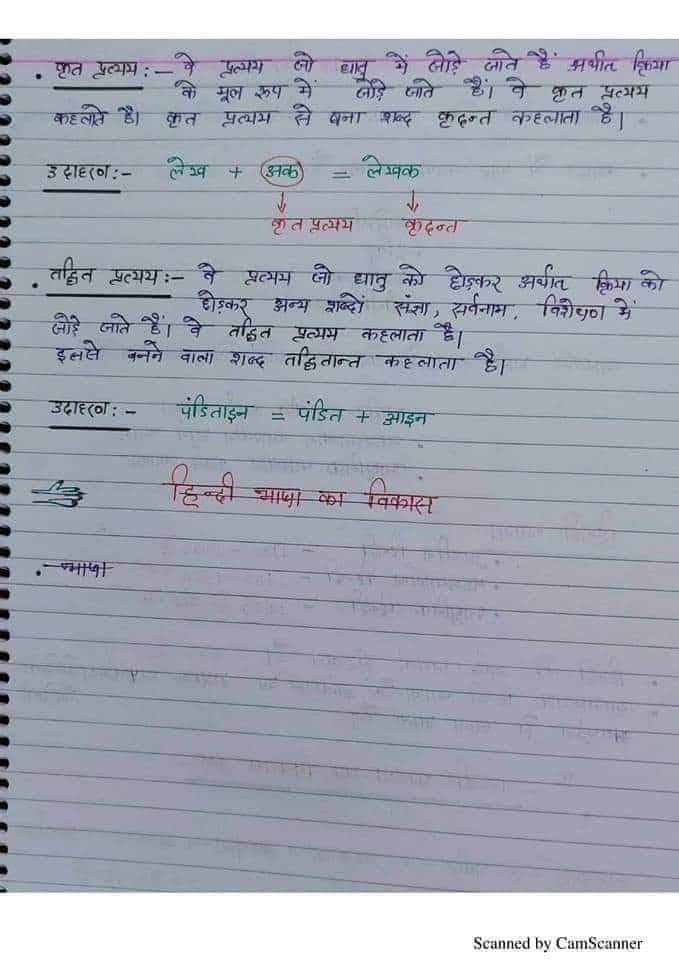 • कृत प्रत्यय :- वे प्रत्यय जो धातु में जोड़े जाते हैं अर्थात क्रिया
के मूल रूप में जोड़े जाते हैं। वे कृत प्रत्यय
कहलाते है। कृत प्रत्यय से बना शब्द कृदन्त कहलाता है।
उदाहरण :- लेख + अक = लेखक
↓ ↓
कृत प्रत्यय कृदन्त
• तद्धित प्रत्यय :- वे प्रत्यय जो धातु को छोड़कर अर्थात् क्रिया को
छोड़कर अन्य शब्दों संज्ञा, सर्वनाम, विशेषण में
जोड़े जाते हैं। वे तद्धित प्रत्यय कहलाता है।
इससे बनने वाला शब्द तद्धितान्त कहलाता है।
उदाहरण :- पंडिताइन = पंडित + आइन
हिन्दी भाषा का विकास
• भाषा
Scanned by CamScanner